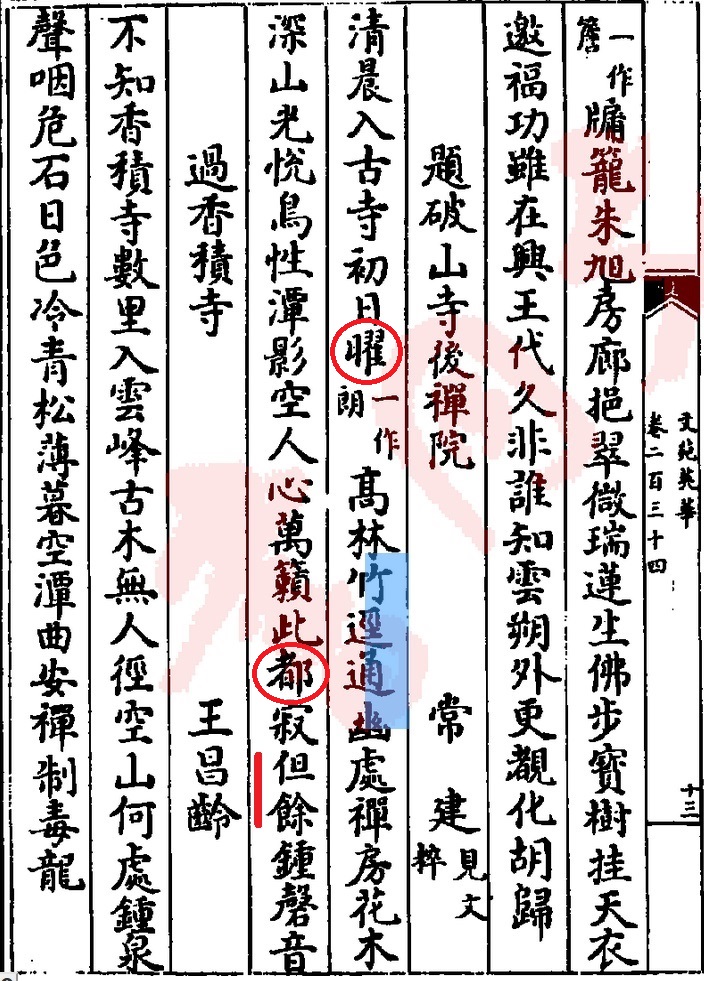 文苑英華
卷二百三十四
十三
一作簷牗籠朱旭房廊挹翠微瑞蓮生佛步寶樹挂天衣
邀福功雖在興王代久非誰知雲朔外更覩化胡歸
題破山寺後禪院 常建 見文粹
清晨入古寺初日曜一作朗高林竹逕通幽處禪房花木
深山光恱鳥性潭影空人心萬籟此都寂但餘鍾磬音
過香積寺 王昌齡
不知香積寺數里入雲峰古木無人徑空山何處鍾泉
聲咽危石日色冷青松薄暮空潭曲安禪制毒龍